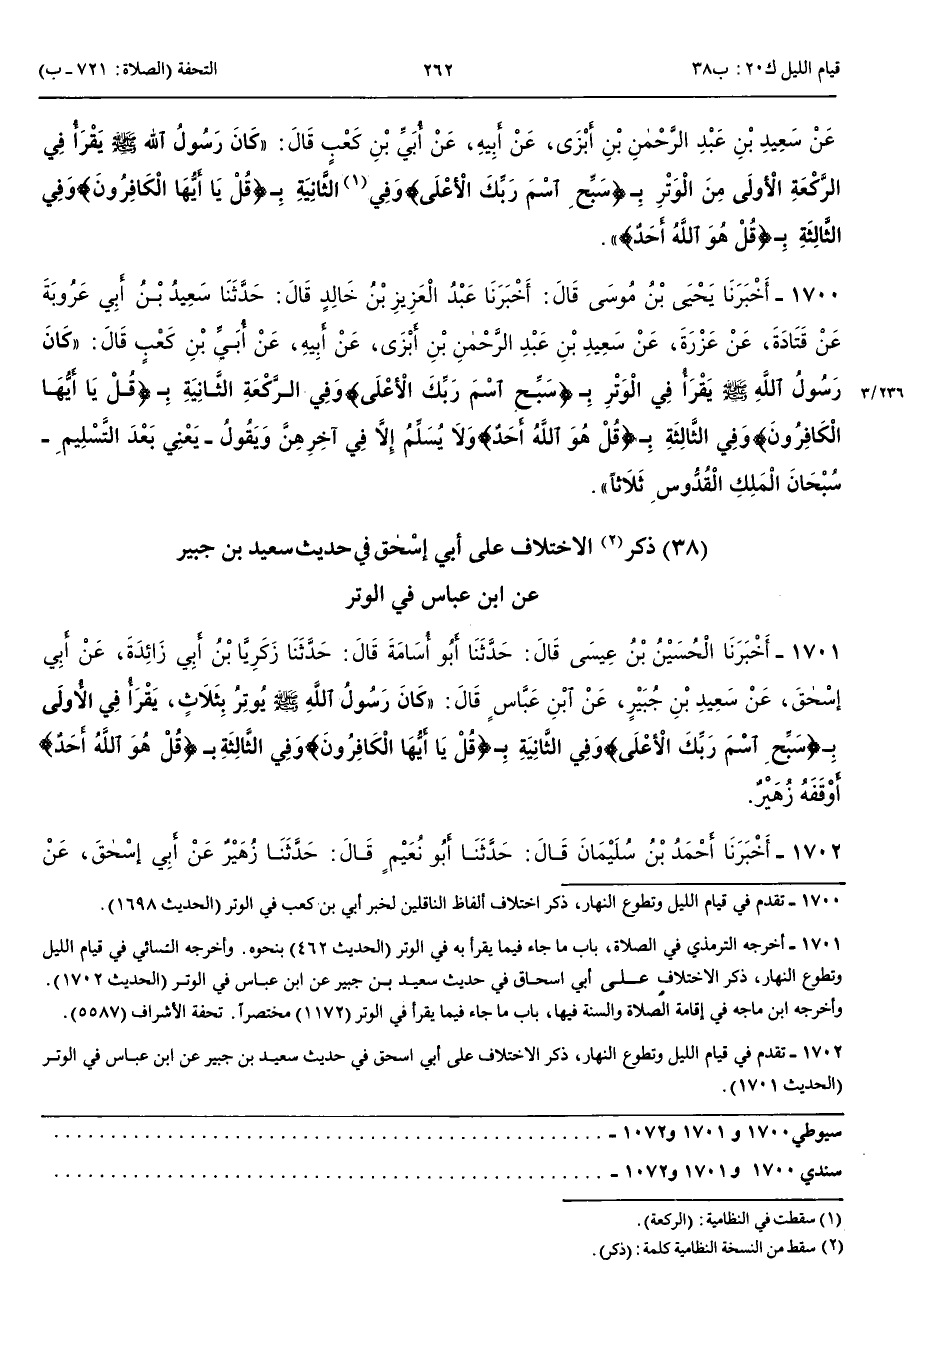 قيام الليل ك٢٠: ب٣٨ ٢٦٢ التحفة (الصلاة: ٧٢١ ـ ب)
عَنْ سَعِيدِ بْنِ عَبْدِ الرَّحْمٰنِ بْنِ أَبْزَى، عَنْ أَبِيهِ، عَنْ أُبَيِّ بْنِ كَعْبٍ قَالَ: «كَانَ رَسُولُ اللهِ ﷺ يَقْرَأُ فِي
الرَّكْعَةِ الْأُولَى مِنَ الْوَتْرِ بِـ ﴿سَبِّحِ ٱسْمَ رَبِّكَ الْأَعْلَى﴾ وَفِي(١) الثَّانِيَةِ بِـ ﴿قُلْ يَا أَيُّهَا الْكَافِرُونَ﴾ وَفِي
الثَّالِثَةِ بِـ ﴿قُلْ هُوَ ٱللَّهُ أَحَدٌ﴾».
١٧٠٠ ـ أَخْبَرَنَا يَحْيَى بْنُ مُوسَى قَالَ: أَخْبَرَنَا عَبْدُ الْعَزِيزِ بْنُ خَالِدٍ قَالَ: حَدَّثَنَا سَعِيدُ بْنُ أَبِي عَرُوبَةَ
عَنْ قَتَادَةَ، عَنْ عَزْرَةَ، عَنْ سَعِيدِ بْنِ عَبْدِ الرَّحْمٰنِ بْنِ أَبْزَى، عَنْ أَبِيهِ، عَنْ أُبَيِّ بْنِ كَعْبٍ قَالَ: «كَانَ
رَسُولُ ٱللَّهِ ﷺ يَقْرَأُ فِي الْوَتْرِ بِـ ﴿سَبِّحِ ٱسْمَ رَبِّكَ الْأَعْلَى﴾ وَفِي الرَّكْعَةِ الثَّانِيَةِ بِـ ﴿قُلْ يَا أَيُّهَا ٣/٢٣٦
الْكَافِرُونَ﴾ وَفِي الثَّالِثَةِ بِـ ﴿قُلْ هُوَ ٱللَّهُ أَحَدٌ﴾ وَلَا يُسَلِّمُ إِلَّا فِي آخِرِهِنَّ وَيَقُولُ ـ يَعْنِي بَعْدَ التَّسْلِيمِ ـ
سُبْحَانَ الْمَلِكِ الْقُدُّوسِ ثَلَاثاً».
(٣٨) ذكر(٢) الاختلاف على أبي إسْحٰق في حديث سعيد بن جبير
عن ابن عباس في الوتر
١٧٠١ ـ أَخْبَرَنَا الْحُسَيْنُ بْنُ عِيسَى قَالَ: حَدَّثَنَا أَبُو أُسَامَةَ قَالَ: حَدَّثَنَا زَكَرِيَّا بْنُ أَبِي زَائِدَةَ، عَنْ أَبِي
إِسْحٰقَ، عَنْ سَعِيدِ بْنِ جُبَيْرٍ، عَنْ ٱبْنِ عَبَّاسٍ قَالَ: «كَانَ رَسُولُ ٱللَّهِ ﷺ يُوتِرُ بِثَلَاثٍ، يَقْرَأُ فِي الْأُولَى
بِـ ﴿سَبِّحِ ٱسْمَ رَبِّكَ الْأَعْلَى﴾ وَفِي الثَّانِيَةِ بِـ ﴿قُلْ يَا أَيُّهَا الْكَافِرُونَ﴾ وَفِي الثَّالِثَةِ بِـ ﴿قُلْ هُوَ ٱللَّهُ أَحَدٌ﴾
أَوْقَفَهُ زُهَيْرٌ.
١٧٠٢ ـ أَخْبَرَنَا أَحْمَدُ بْنُ سُلَيْمَانَ قَالَ: حَدَّثَنَا أَبُو نُعَيْمٍ قَالَ: حَدَّثَنَا زُهَيْرٌ عَنْ أَبِي إِسْحٰقَ، عَنْ
١٧٠٠ ـ تقدم في قيام الليل وتطوع النهار، ذكر اختلاف ألفاظ الناقلين لخبر أبي بن كعب في الوتر (الحديث ١٦٩٨).
١٧٠١ ـ أخرجه الترمذي في الصلاة، باب ما جاء فيما يقرأ به في الوتر (الحديث ٤٦٢) بنحوه. وأخرجه النسائي في قيام الليل
وتطوع النهار، ذكر الاختلاف على أبي اسحاق في حديث سعيد بن جبير عن ابن عباس في الوتر (الحديث ١٧٠٢).
وأخرجه ابن ماجه في إقامة الصلاة والسنة فيها، باب ما جاء فيما يقرأ في الوتر (١١٧٢) مختصراً. تحفة الأشراف (٥٥٨٧).
١٧٠٢ ـ تقدم في قيام الليل وتطوع النهار، ذكر الاختلاف على أبي اسحق في حديث سعيد بن جبير عن ابن عباس في الوتر
(الحديث ١٧٠١).
سيوطي ١٧٠٠ و ١٧٠١ و١٠٧٢ ـ ........................................................
سندي ١٧٠٠ و١٧٠١ و١٠٧٢ ـ ........................................................
(١) سقطت في النظامية: (الركعة).
(٢) سقط من النسخة النظامية كلمة: (ذكر).